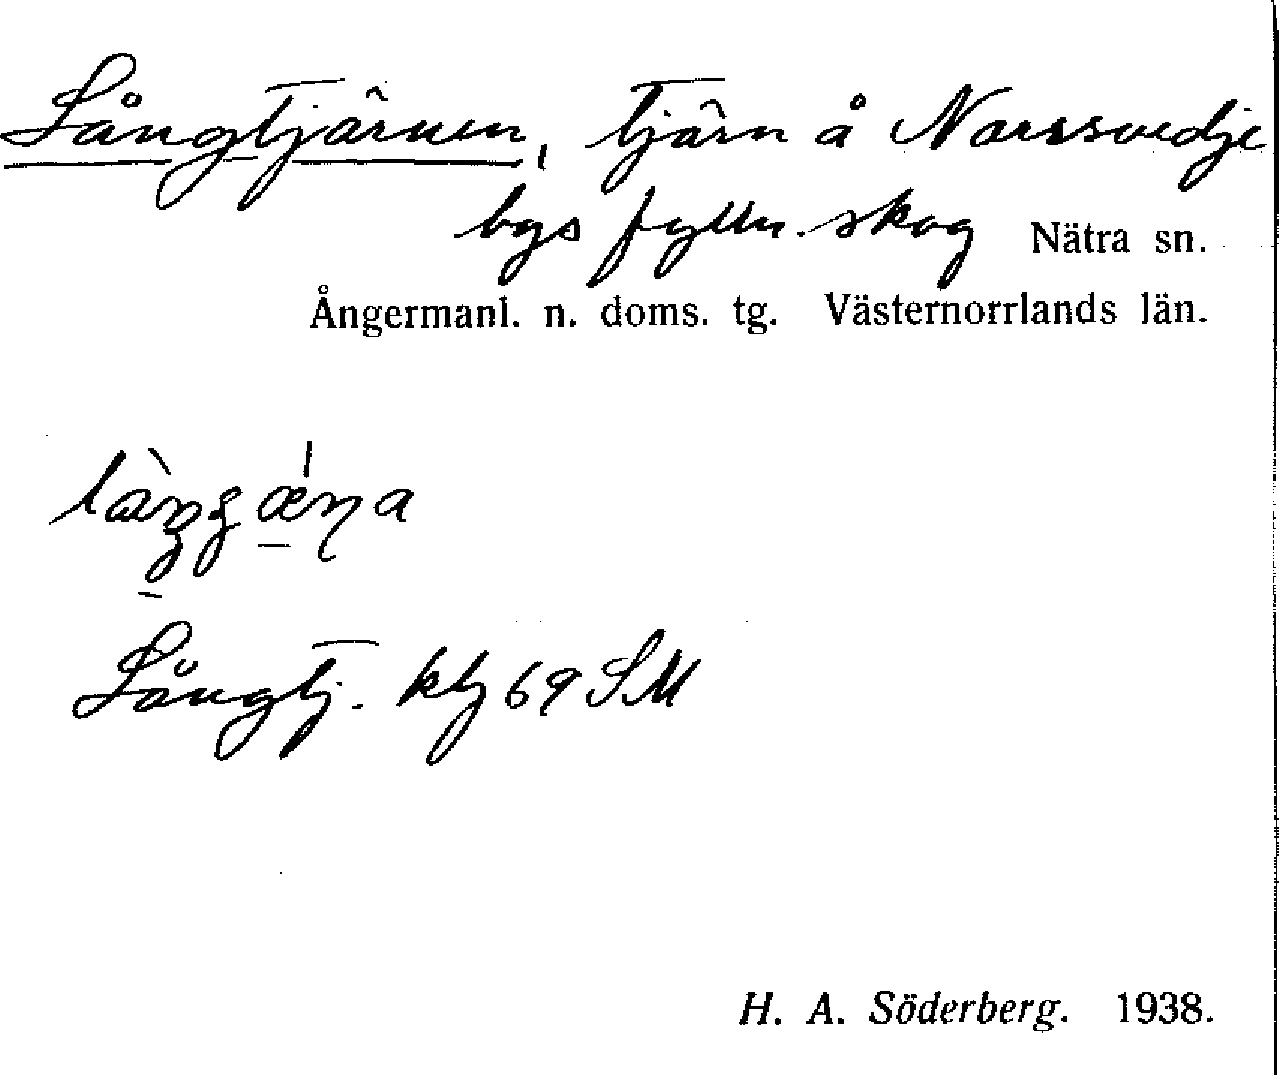 Långtjärnen, tjärn å Norssvedje
bys fylln. skog Nätra sn.
Ångermanl. n. doms. tg. Västernorrlands län.
Långtj. ktj 69 SM
H. A. Söderberg. 1938.